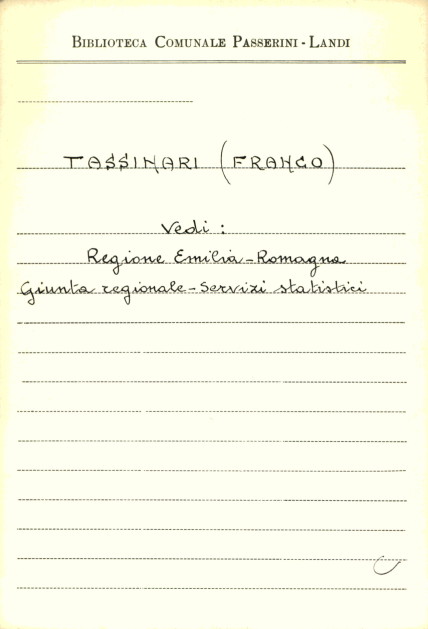 BIBLIOTECA COMUNALE PASSERINI - LANDI
TASSINARI (FRANCO)
Vedi :
Regione Emilia-Romagna
Giunta regionale-Servizi statistici